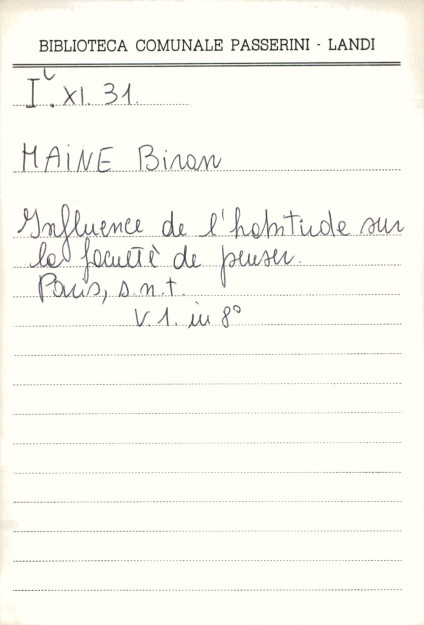 BIBLIOTECA COMUNALE PASSERINI - LANDI
Iᶜ. XI. 31.
MAINE Biran
Influence de l'habitude sur
la facultè de penser.
Paris, s.n.t.
V. 1. in 8°